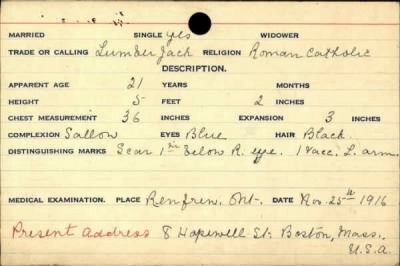 MARRIED SINGLE yes WIDOWER
TRADE OR CALLING Lumber Jack RELIGION Roman Catholic
DESCRIPTION.
APPARENT AGE 21 YEARS MONTHS
HEIGHT 5 FEET 2 INCHES
CHEST MEASUREMENT 36 INCHES EXPANSION 3 INCHES
COMPLEXION Sallow EYES Blue HAIR Black
DISTINGUISHING MARKS Scar 1 in below R. eye. 1 Vacc. L. arm.
MEDICAL EXAMINATION. PLACE Renfrew, Ont. DATE Nov. 25th 1916
Present Address 8 Hopewell St. Boston, Mass.
U.S.A.